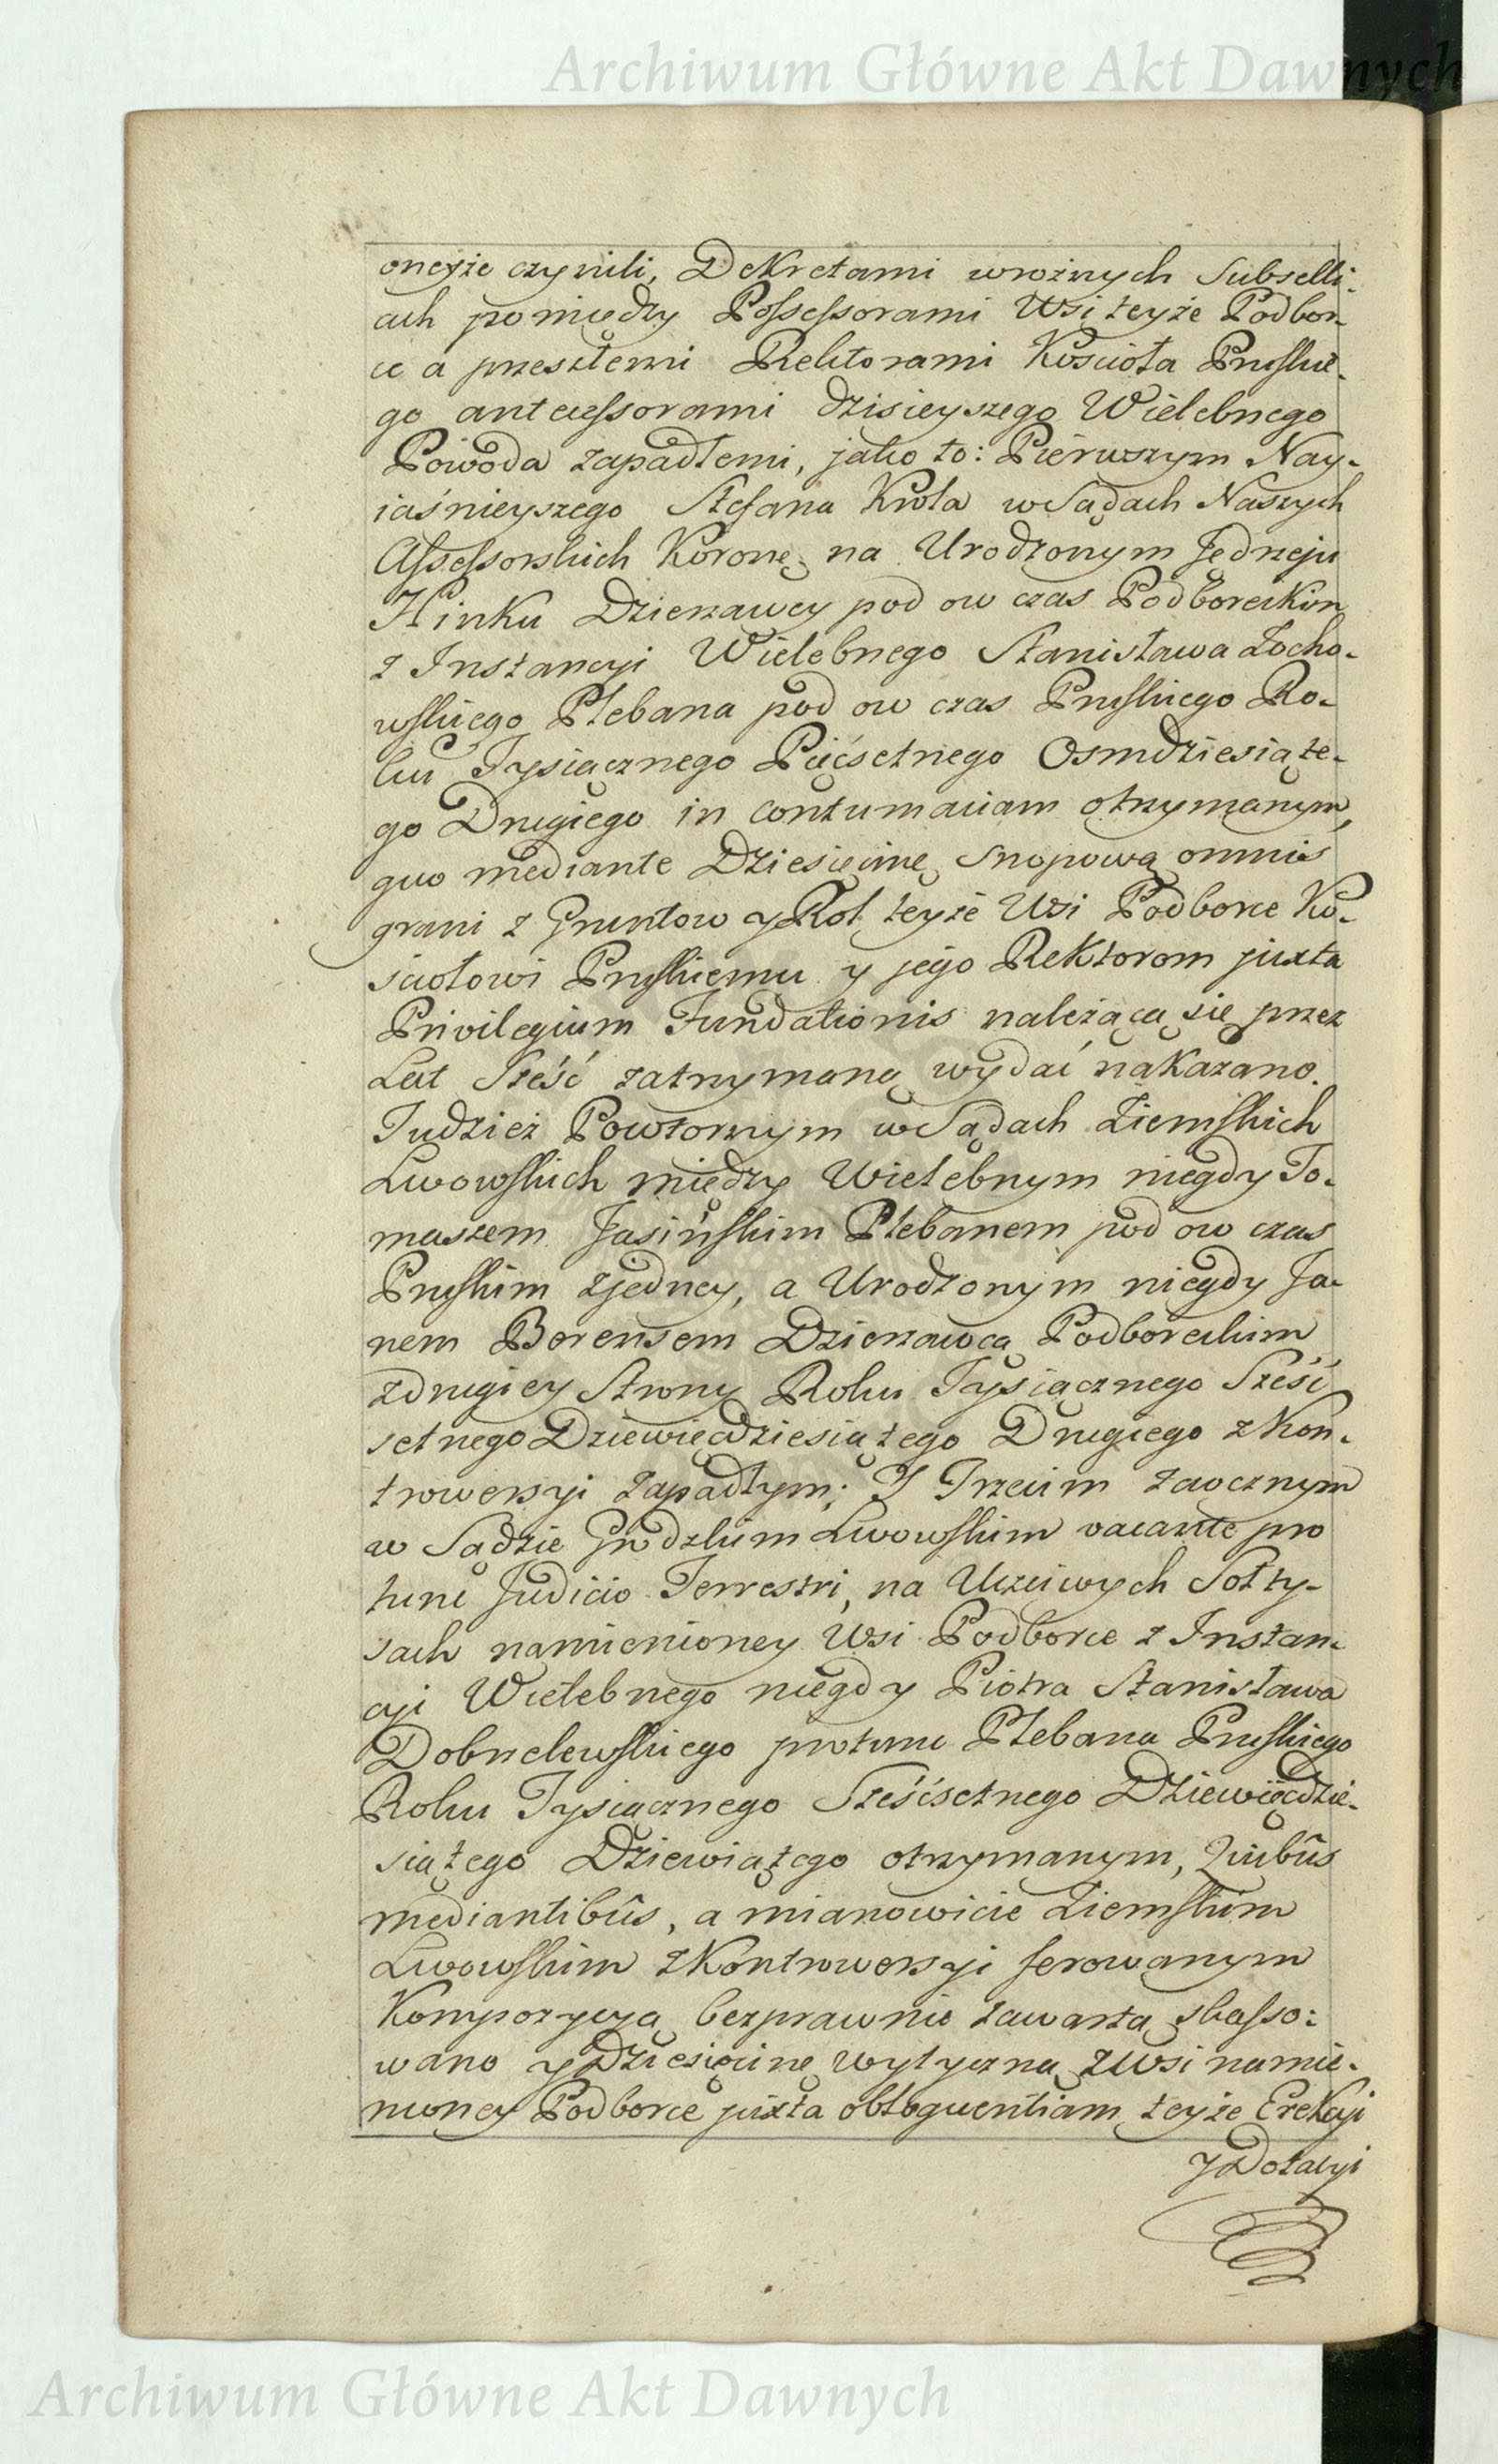 Archiwum Główne Akt Dawnych
oneyże czynili, Dekretami w rożnych Subselli-
ach pomiędzy Possessorami Wsi teyże Podbor-
ce a przeszłemi Rektorami Kościoła Pruskie-
go antecessorami dzisieyszego Wielebnego
Powoda zapadłemi, jako to: Pierwszym Nay-
iaśnieyszego Stefana Krola w Sądach Naszych
Assessorskich Koronę na Urodzonym Jędrzeju
Hinku Dzierzawcy pod ow czas Podboreckim
z Instancyi Wielebnego Stanisława Łocho-
wskiego Plebana pod ow czas Pruskiego Ro-
ku Tysiącznego Pięćsetnego Osmdziesiąte-
go Drugiego in contumaciam otrzymanym,
quo mediante Dziesięcinę Snopową omnis
grani z Gruntow y Rol teyże Wsi Podborce Ko-
sciołowi Pruskiemu y jego Rektorom juxta
Privilegium Fundationis należącą się przez
Lat Sześć zatrzymaną wydać nakazano.
Tudzież Powtornym w Sądach Ziemskich
Lwowskich między Wielebnym niegdy To-
maszem Jasińskim Plebanem pod ow czas
Pruskim z jedney, a Urodzonym niegdy Ja-
nem Borensem Dzierzawcą Podboreckim
z drugiey Strony Roku Tysiącznego Sześć
setnego Dziewięćdziesiątego Drugiego z Kon-
trowersyi zapadłym; I Trzecim zaocznym
w Sądzie Grodzkim Lwowskim vacante pro
tunc Judicio Terrestri, na Uczciwych Sołty-
sach namienioney Wsi Podborce z Instan-
cyi Wielebnego niegdy Piotra Stanisława
Dobrzelewskiego protunc Plebana Pruskiego
Roku Tysiącznego Sześćsetnego Dziewięćdzie-
siątego Dziewiątego otrzymanym, Quibûs
mediantibûs, a mianowicie Ziemskim
Lwowskim z Kontrowersyi ferowanym
Kompozycyą bezprawnie zawartą skasso-
wano y Dziesięcinę wytyczną z Wsi namie-
nioney Podborce juxta obloquentiam teyże Erekcyi
y Dotacyi
Archiwum Główne Akt Dawnych